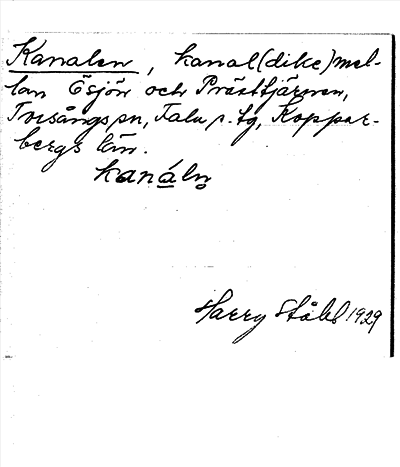 Kanalen, kanal (dike) mel-
lan Ösjön och Prästtjärnen,
Torsångs sn, Falu s. tg, Koppar-
bergs län.
kanáln̥
Harry Ståhl 1929